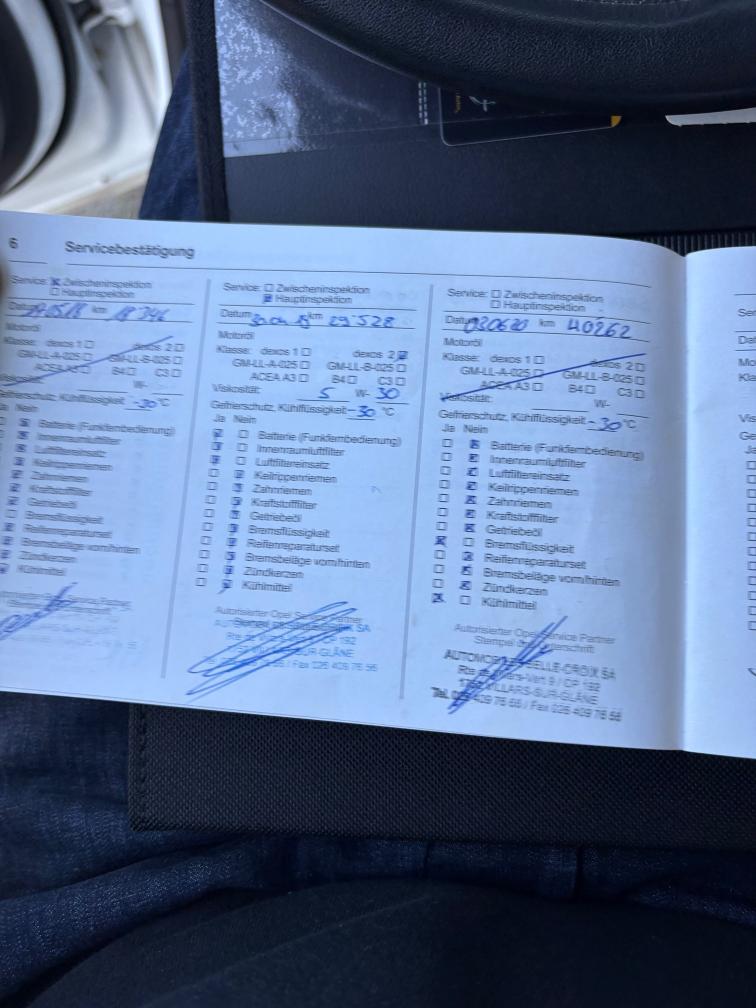 6 Servicebestätigung
Service: Zwischeninspektion
Hauptinspektion
km 18346
Motoröl
Klasse: dexos 1 dexos 2
GM-LL-A-025 GM-LL-B-025
ACEA A3 B4 C3
W-
Gefrierschutz, Kühlflüssigkeit -30 °C
Ja Nein
Batterie (Funkfernbedienung)
Innenraumluftfilter
Luftfiltereinsatz
Keilrippenriemen
Zahnriemen
Kraftstofffilter
Getriebeöl
Bremsflüssigkeit
Reifenreparaturset
Bremsbeläge vorn/hinten
Zündkerzen
Kühlmittel
Service: Zwischeninspektion
Hauptinspektion
Datum km 29'528
Motoröl
Klasse: dexos 1 dexos 2
GM-LL-A-025 GM-LL-B-025
ACEA A3 B4 C3
Viskosität: 5 W- 30
Gefrierschutz, Kühlflüssigkeit -30 °C
Ja Nein
Batterie (Funkfernbedienung)
Innenraumluftfilter
Luftfiltereinsatz
Keilrippenriemen
Zahnriemen
Kraftstofffilter
Getriebeöl
Bremsflüssigkeit
Reifenreparaturset
Bremsbeläge vorn/hinten
Zündkerzen
Kühlmittel
Autorisierter Opel Service Partner
SA
CP 192
SUR-GLÂNE
/ Fax 026 409 76 56
Service: Zwischeninspektion
Hauptinspektion
Datum 030620 km 40262
Motoröl
Klasse: dexos 1 dexos 2
GM-LL-A-025 GM-LL-B-025
ACEA A3 B4 C3
Viskosität: W-
Gefrierschutz, Kühlflüssigkeit -30 °C
Ja Nein
Batterie (Funkfernbedienung)
Innenraumluftfilter
Luftfiltereinsatz
Keilrippenriemen
Zahnriemen
Kraftstofffilter
Getriebeöl
Bremsflüssigkeit
Reifenreparaturset
Bremsbeläge vorn/hinten
Zündkerzen
Kühlmittel
Autorisierter Opel Service Partner
Stempel Unterschrift
BELLE-CROIX SA
Vert 9 / CP 192
VILLARS-SUR-GLÂNE
Tel. 409 76 56 / Fax 026 409 76 56